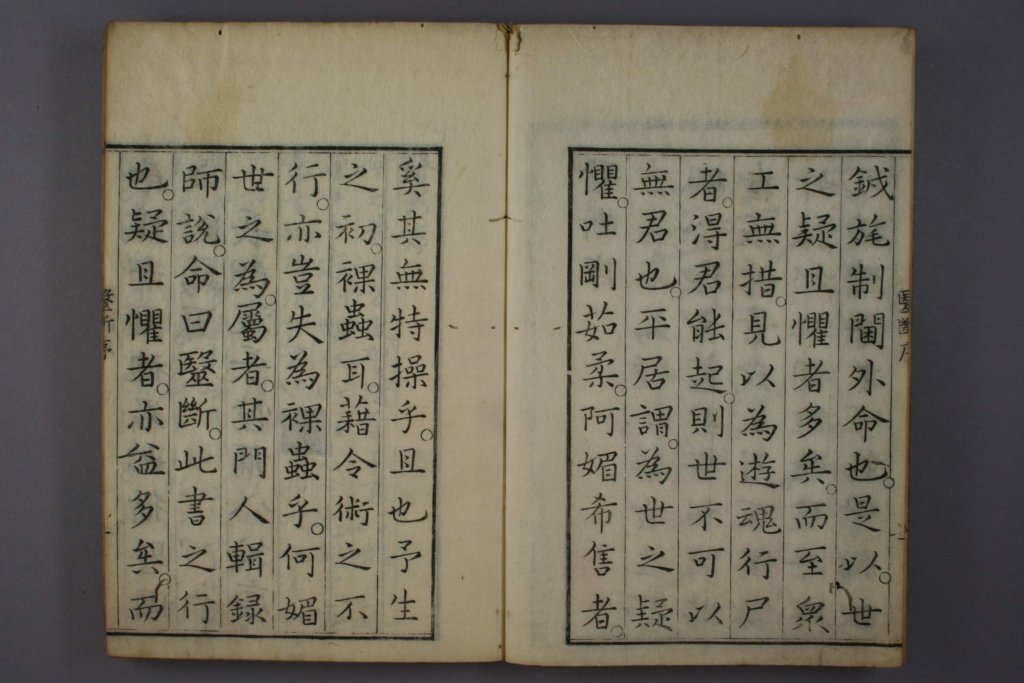 鍼旄制閫外命也是以世
之疑且懼者多矣而至衆
工無措見以為遊魂行尸
者得君能起則世不可以
無君也平居謂為世之疑
懼吐剛茹柔阿媚希售者
奚其無特操乎且也予生
之初裸蟲耳藉令術之不
行亦豈失為裸蟲乎何媚
世之為屬者其門人輯錄
師說命曰毉斷此書之行
也疑且懼者亦益多矣而
毉斷序